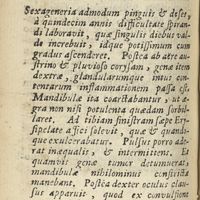 Sexageneria admodum pinguis & deses,
à quindecim annis difficultate spiran-
di laboravit, quæ singulis diebus val-
de increbuit, idque potissimum cum
gradus ascenderet. Postea ab aëre au-
strino & pluvioso coryzam, genæ item
dextræ, glandularumque intus con-
tentarum inflammationem passa est.
Mandibulæ ita coarctabantur, ut æ-
gra non nisi potulenta quædam sorbil-
laret. Ad tibiam sinistram sæpe Ery-
sipelate affici solevit, quæ & quandó-
que exulcerabatur. Pulsus porro ade-
rat inæqualis, & intermittens. Et
quamvis genæ tumor detumuerat,
mandibulæ nihilominus constrictæ
manebant. Postea dexter oculus clau-
sus apparuit, quod ex convulsione